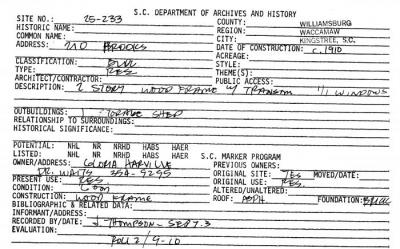 S.C. DEPARTMENT OF ARCHIVES AND HISTORY
SITE NO.: 25-233 COUNTY: WILLIAMSBURG
HISTORIC NAME: REGION: WACCAMAW
COMMON NAME: CITY: KINGSTREE, S.C.
ADDRESS: 710 BROOKS DATE OF CONSTRUCTION: c. 1910
ACREAGE:
CLASSIFICATION: BLDG STYLE:
TYPE: RES. THEME(S):
ARCHITECT/CONTRACTOR: PUBLIC ACCESS:
DESCRIPTION: 2 STORY WOOD FRAME W/ TRANSOM 1/1 WINDOWS
OUTBUILDINGS: 1 STORAGE SHED
RELATIONSHIP TO SURROUNDINGS:
HISTORICAL SIGNIFICANCE:
POTENTIAL: NHL NR NRHD HABS HAER
LISTED: NHL NR NRHD HABS HAER S.C. MARKER PROGRAM
OWNER/ADDRESS: GLORIA HARVILLE PREVIOUS OWNERS:
DR. WATTS 354-9295 ORIGINAL SITE: YES MOVED/DATE:
PRESENT USE: RES. ORIGINAL USE: RES.
CONDITION: GOOD ALTERED/UNALTERED:
CONSTRUCTION: WOOD FRAME ROOF: ASPH FOUNDATION: BRICK
BIBLIOGRAPHIC & RELATED DATA:
INFORMANT/ADDRESS:
RECORDED BY/DATE: J. THOMPSON - SEPT. 3
EVALUATION:
ROLL 2 / 9-10